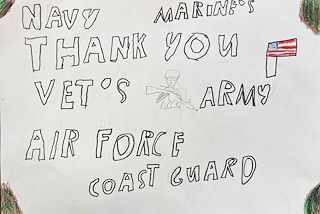 NAVY MARINE'S
THANK YOU
VET'S ARMY
AIR FORCE
COAST GUARD